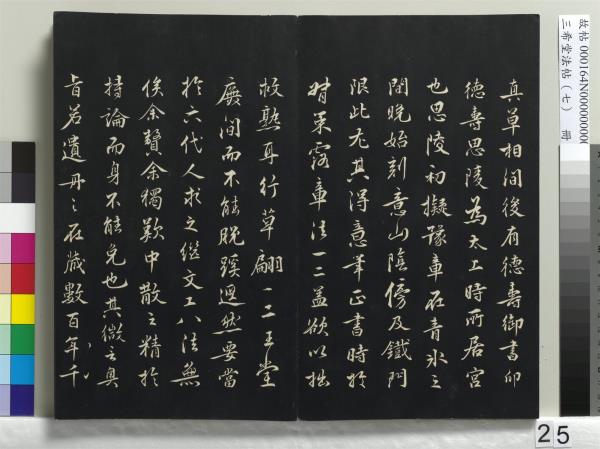 真草相間後有德壽御書卯
德壽思陵為太上時所居宮
也思陵初擬豫章在青氷之
間晚始刻意山陰傍及鐵門
限此尤其得意筆正書時於
策露章法一二蓋欲以拙
救熟耳行草翩〻二王堂
廡間而不能脫蹊逕然要當
於六代人求之繼文工八法無
俟余贅余獨歎中散之精於
持論而身不能免也其微言奧
旨若遺丹〻在藏數百年千
故帖 000164N000000000
三希堂法帖（七） 冊
25